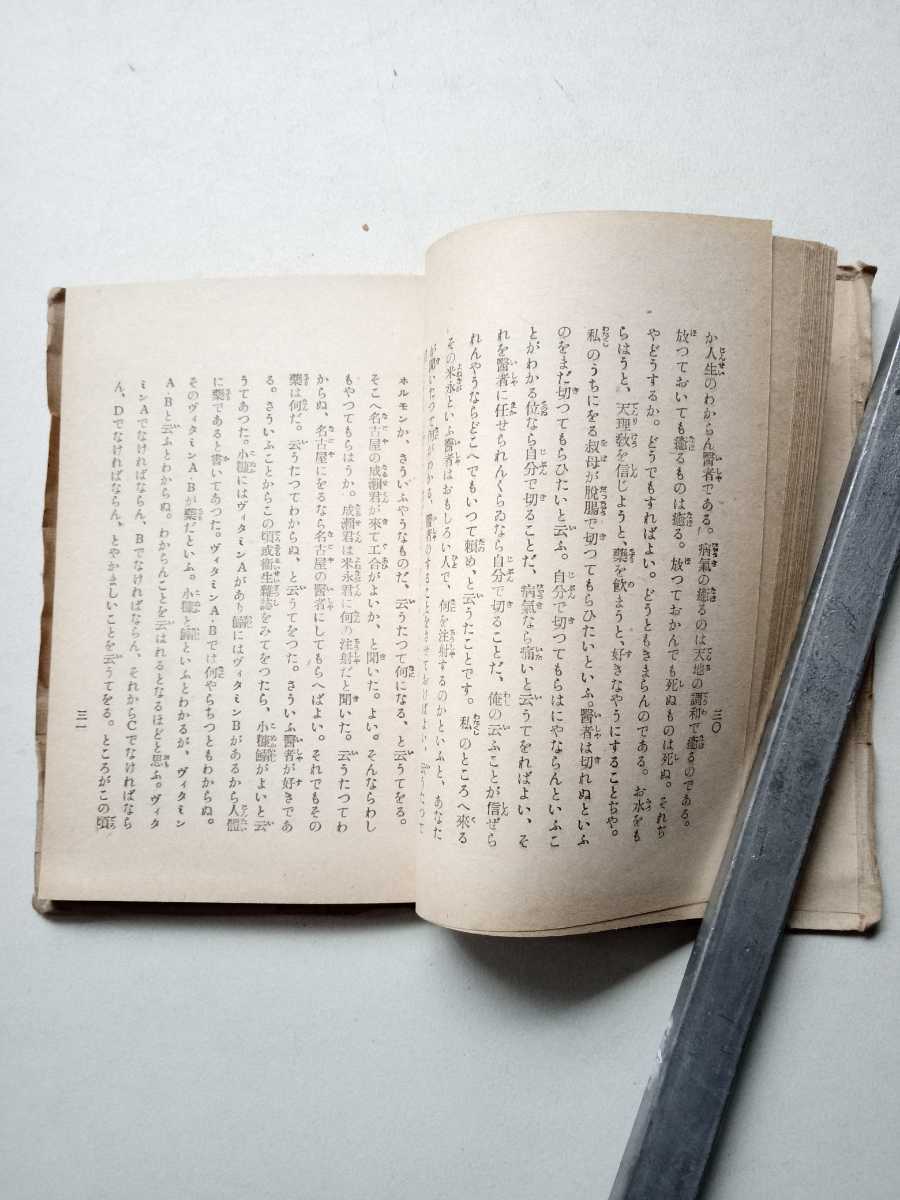 か人生のわからん醫者である。病氣の癒るのは天地の調和で癒るのである。
放つておいても癒るものは癒る。放つておかんでも死ぬものは死ぬ。それぢ
やどうするか。どうでもすればよい。どうともきまらんのである。お水をも
らはうと、天理敎を信じようと、藥を飮まうと、好きなやうにすることぢや。
私のうちにをる叔母が脫腸で切つてもらひたいといふ。醫者は切れぬといふ
のをまだ切つてもらひたいと云ふ。自分で切つてもらはにやならんといふこ
とがわかる位なら自分で切ることだ、病氣なら痛いと云うてをればよい、そ
れを醫者に任せられんくらゐなら自分で切ることだ、俺の云ふことが信ぜら
れんやうならどこへでもいつて賴め、と云うたことです。私のところへ來る
その米永といふ醫者はおもしろい人で、何を注射するのかといふと、あなた
が聞いたつて何がわかる、醫者のすることをさせておけばよい、
三〇
ホルモンか、さういふやうなものだ、云うたつて何になる、と云うてをる。
そこへ名古屋の成瀨君が來て工合がよいか、と聞いた。よい。そんならわし
もやつてもらはうか。成瀨君は米永君に何の注射だと聞いた。云うたつてわ
からぬ、名古屋にをるなら名古屋の醫者にしてもらへばよい。それでもその
藥は何だ。云うたつてわからぬ、と云うてをつた。さういふ醫者が好きであ
る。さういふことからこの頃或衞生雜誌をみてをつたら、小糠鰯がよいと云
うてあつた。小糠にはヴィタミンAがあり鰯にはヴィタミンBがあるから人體
に藥であると書いてあつた。ヴィタミンA・Bでは何やらちつともわからぬ。
そのヴィタミンA・Bが藥だといふ。小糠と鰯といふとわかるが、ヴィタミン
ABと云ふとわからぬ。わからんことを云はれるとなるほどと思ふ。ヴィタ
ミンAでなければならん、Bでなければならん、それからCでなければなら
ん、Dでなければならん、とやかましいことを云うてをる。ところがこの頃
三一